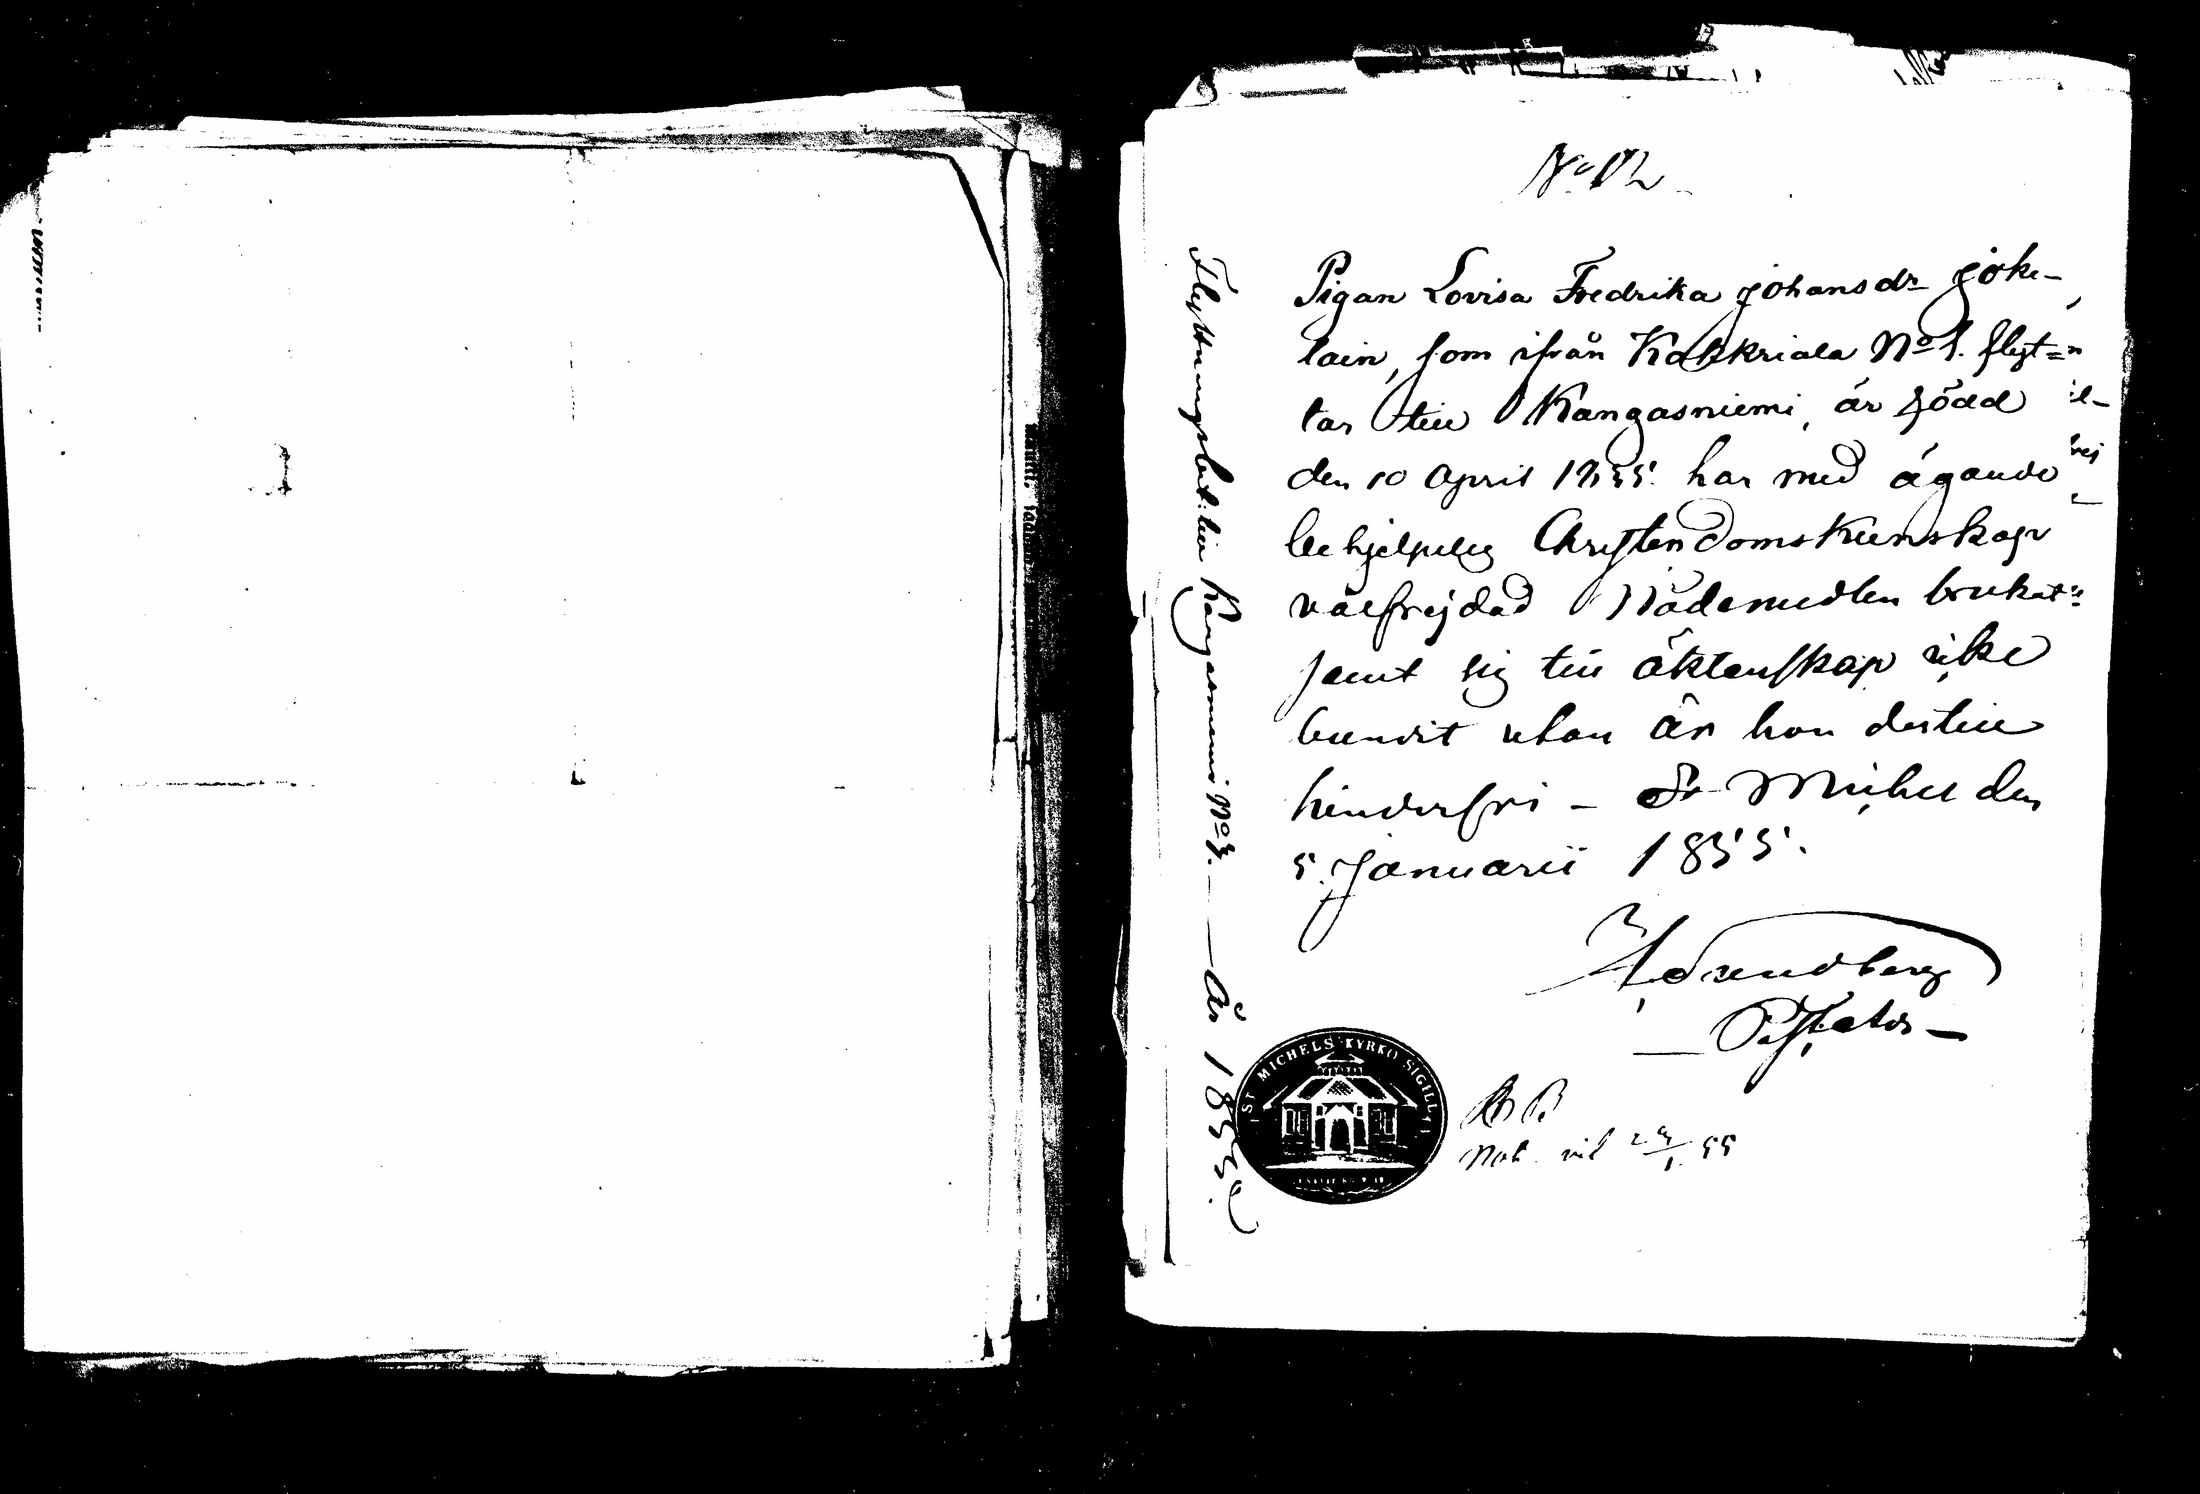 No 12
Pigan Lovisa Fredrika Johansdr Joke-
lain, som ifrån Kakkriala No 1. flyt=
tar till Kangasniemi, är född
den 10 April 1835. har med ägande
behjelpelig Christendomskunskap
välfrejdad Nådemedlen brukat
samt sig till äktenskap icke
bundit utan är hon dertill
hinderfri - St Michel den
5. Januarii 1855.
Sundberg
Pastor
Not. vid 1. 55
Flyttningsbet: till Kangasniemi No 3. — År 1855.
ST MICHELS KYRKO SIGILL